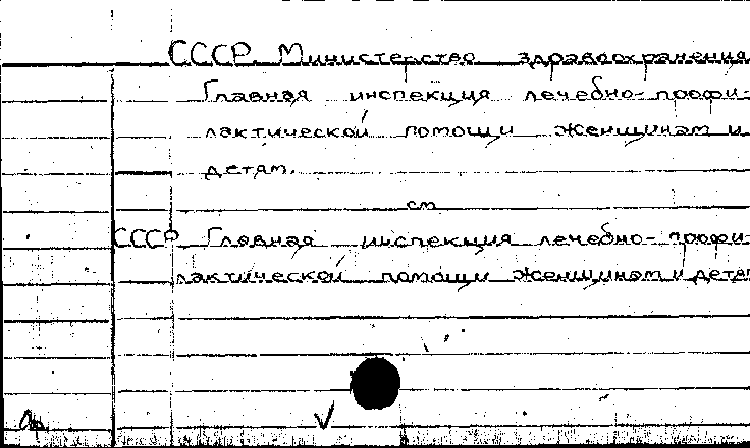 СССР. Министерство здравоохранения
Главная инспекция лечебно-профи-
лактической помощи женщинам и
детям.
см
СССР Главная инспекция лечебно-профи-
лактической помощи женщинам и детям